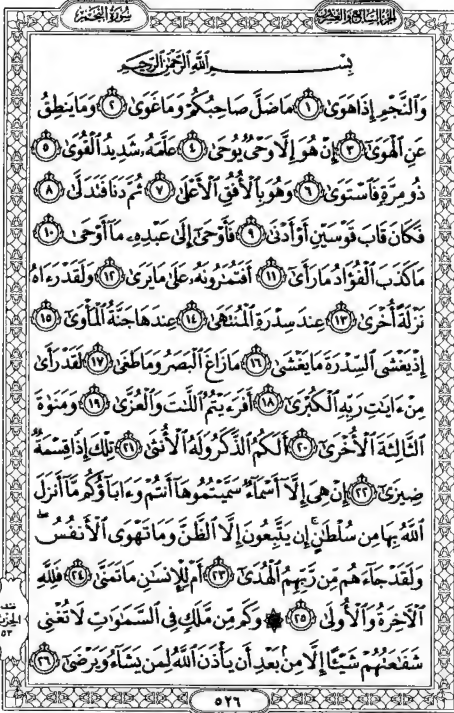 سُورَةُ النَّجْمِ
الجزء السابع والعشرون
بِسْمِ ٱللَّهِ ٱلرَّحْمَٰنِ ٱلرَّحِيمِ
وَٱلنَّجْمِ إِذَا هَوَىٰ ١ مَا ضَلَّ صَاحِبُكُمْ وَمَا غَوَىٰ ٢ وَمَا يَنطِقُ
عَنِ ٱلْهَوَىٰ ٣ إِنْ هُوَ إِلَّا وَحْىٌ يُوحَىٰ ٤ عَلَّمَهُۥ شَدِيدُ ٱلْقُوَىٰ ٥
ذُو مِرَّةٍ فَٱسْتَوَىٰ ٦ وَهُوَ بِٱلْأُفُقِ ٱلْأَعْلَىٰ ٧ ثُمَّ دَنَا فَتَدَلَّىٰ ٨
فَكَانَ قَابَ قَوْسَيْنِ أَوْ أَدْنَىٰ ٩ فَأَوْحَىٰٓ إِلَىٰ عَبْدِهِۦ مَآ أَوْحَىٰ ١٠
مَا كَذَبَ ٱلْفُؤَادُ مَا رَأَىٰٓ ١١ أَفَتُمَٰرُونَهُۥ عَلَىٰ مَا يَرَىٰ ١٢ وَلَقَدْ رَءَاهُ
نَزْلَةً أُخْرَىٰ ١٣ عِندَ سِدْرَةِ ٱلْمُنتَهَىٰ ١٤ عِندَهَا جَنَّةُ ٱلْمَأْوَىٰٓ ١٥
إِذْ يَغْشَى ٱلسِّدْرَةَ مَا يَغْشَىٰ ١٦ مَا زَاغَ ٱلْبَصَرُ وَمَا طَغَىٰ ١٧ لَقَدْ رَأَىٰ
مِنْ ءَايَٰتِ رَبِّهِ ٱلْكُبْرَىٰٓ ١٨ أَفَرَءَيْتُمُ ٱللَّٰتَ وَٱلْعُزَّىٰ ١٩ وَمَنَوٰةَ
ٱلثَّالِثَةَ ٱلْأُخْرَىٰٓ ٢٠ أَلَكُمُ ٱلذَّكَرُ وَلَهُ ٱلْأُنثَىٰ ٢١ تِلْكَ إِذًا قِسْمَةٌ
ضِيزَىٰٓ ٢٢ إِنْ هِىَ إِلَّآ أَسْمَآءٌ سَمَّيْتُمُوهَآ أَنتُمْ وَءَابَآؤُكُم مَّآ أَنزَلَ
ٱللَّهُ بِهَا مِن سُلْطَٰنٍ ۚ إِن يَتَّبِعُونَ إِلَّا ٱلظَّنَّ وَمَا تَهْوَى ٱلْأَنفُسُ ۖ
وَلَقَدْ جَآءَهُم مِّن رَّبِّهِمُ ٱلْهُدَىٰٓ ٢٣ أَمْ لِلْإِنسَٰنِ مَا تَمَنَّىٰ ٢٤ فَلِلَّهِ
ٱلْءَاخِرَةُ وَٱلْأُولَىٰ ٢٥ ۞ وَكَم مِّن مَّلَكٍ فِى ٱلسَّمَٰوَٰتِ لَا تُغْنِى
شَفَٰعَتُهُمْ شَيْـًٔا إِلَّا مِنۢ بَعْدِ أَن يَأْذَنَ ٱللَّهُ لِمَن يَشَآءُ وَيَرْضَىٰٓ ٢٦
الحزب
٥٣
٥٢٦